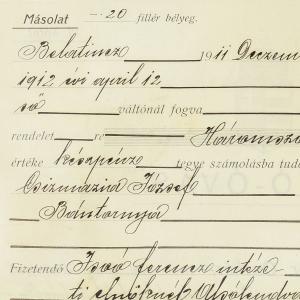 Másolat —·20 fillér bélyeg.
Belatincz 1911 Deczem
1912 évi april 12
től váltónál fogva
rendelet re Háromszá
értéke készpénz tegye számolásba tudó
Csizmazia József
Bántornya
Fizetendő Ivó Ferencz intéze-
ti elnöknek Alsólendva